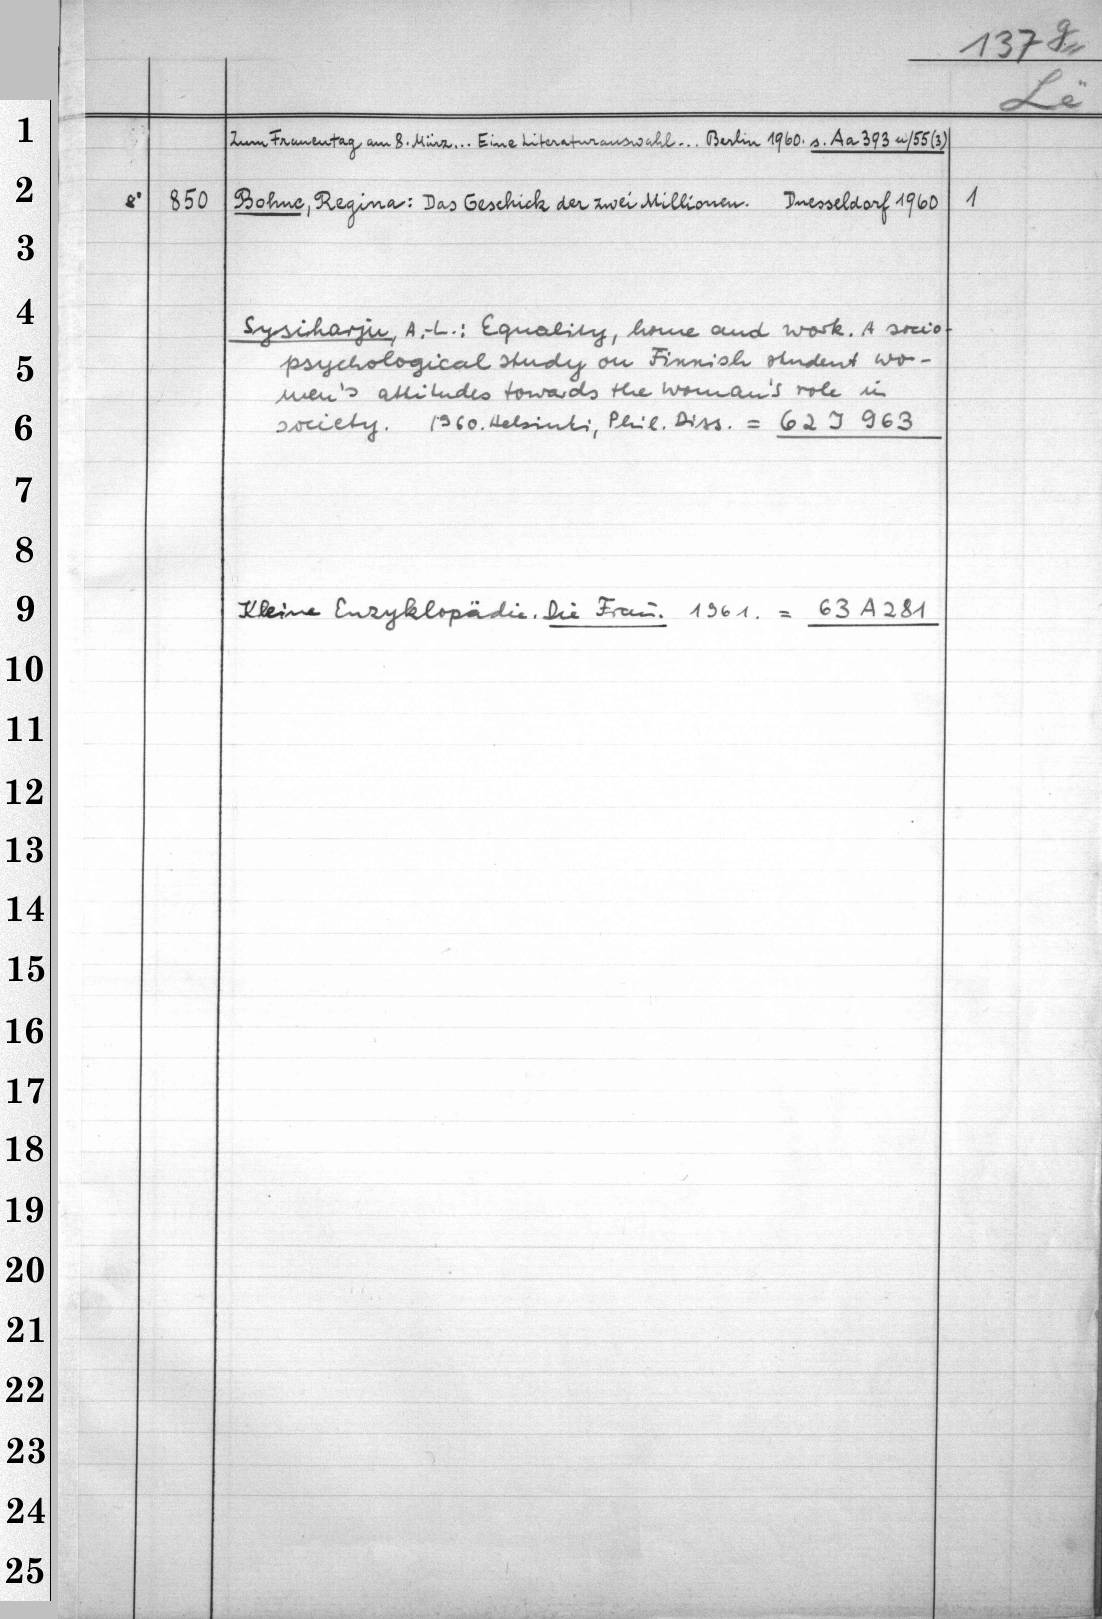 137 g
Lë
1
Zum Frauentag am 8. März... Eine Literaturauswahl... Berlin 1960. s. Aa 393 u/55(3)
2
8° 850 Bohne, Regina: Das Geschick der zwei Millionen. Duesseldorf 1960 1
3
4
Sysiharju, A.-L.: Equality, home and work. A socio-
5
psychological study on Finnish student wo-
men's attitudes towards the woman's role in
6
society. 1960. Helsinki, Phil. Diss. = 62 J 963
7
8
9
Kleine Enzyklopädie. Die Frau. 1961. = 63 A 281
10
11
12
13
14
15
16
17
18
19
20
21
22
23
24
25